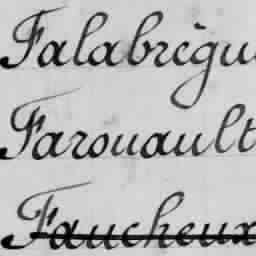 Falabrègu
Farouault
Faucheux